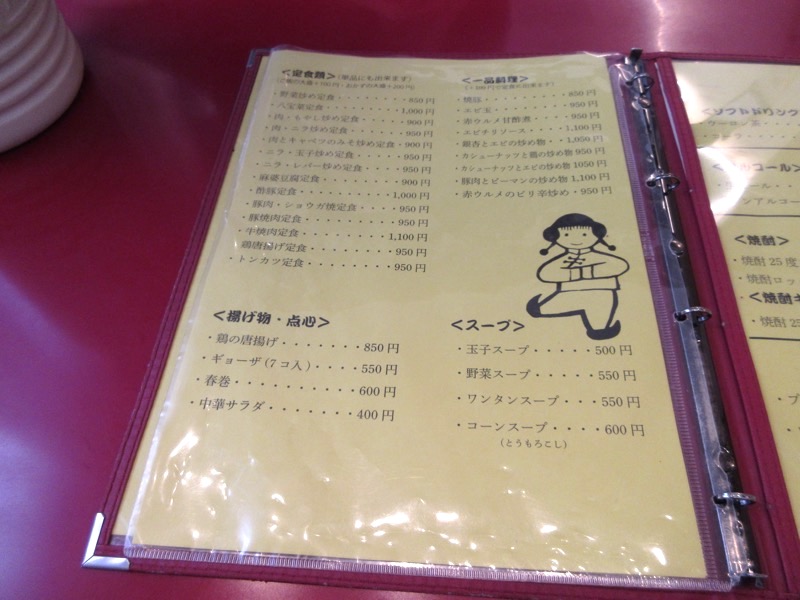 ＜定食類＞(単品にも出来ます)
・野菜炒め定食・・・・・・・・850円
・八宝菜定食・・・・・・・・1,000円
・肉・もやし炒め定食・・・・・900円
・肉・ニラ炒め定食・・・・・・950円
・肉とキャベツのみそ炒め定食・900円
・ニラ・玉子炒め定食・・・・・950円
・ニラ・レバー炒め定食・・・・950円
・麻婆豆腐定食・・・・・・・・900円
・酢豚定食・・・・・・・・・1,000円
・豚肉・ショウガ焼定食・・・・950円
・豚焼肉定食・・・・・・・・・950円
・牛焼肉定食・・・・・・・・1,100円
・鶏唐揚げ定食・・・・・・・・950円
・トンカツ定食・・・・・・・・950円
＜一品料理＞
・酢豚・・・・・・・・・・850円
・エビ玉・・・・・・・・・950円
・赤ウルメ甘酢煮・・・・・950円
・エビチリソース・・・・1,100円
・銀杏とエビの炒め物・・1,050円
・カシューナッツと鶏の炒め物 950円
・カシューナッツとエビの炒め物 1050円
・豚肉とピーマンの炒め物 1,100円
・赤ウルメのピリ辛炒め・950円
＜揚げ物・点心＞
・鶏の唐揚げ・・・・・・・850円
・ギョーザ(7コ入)・・・・550円
・春巻・・・・・・・・・・600円
・中華サラダ・・・・・・・・400円
＜スープ＞
・玉子スープ・・・・・500円
・野菜スープ・・・・・550円
・ワンタンスープ・・・550円
・コーンスープ・・・・600円
(とうもろこし)
＜ソフトドリンク
＜焼酎＞
・焼酎25度
・焼酎ロッ
＜焼酎キ
・焼酎25